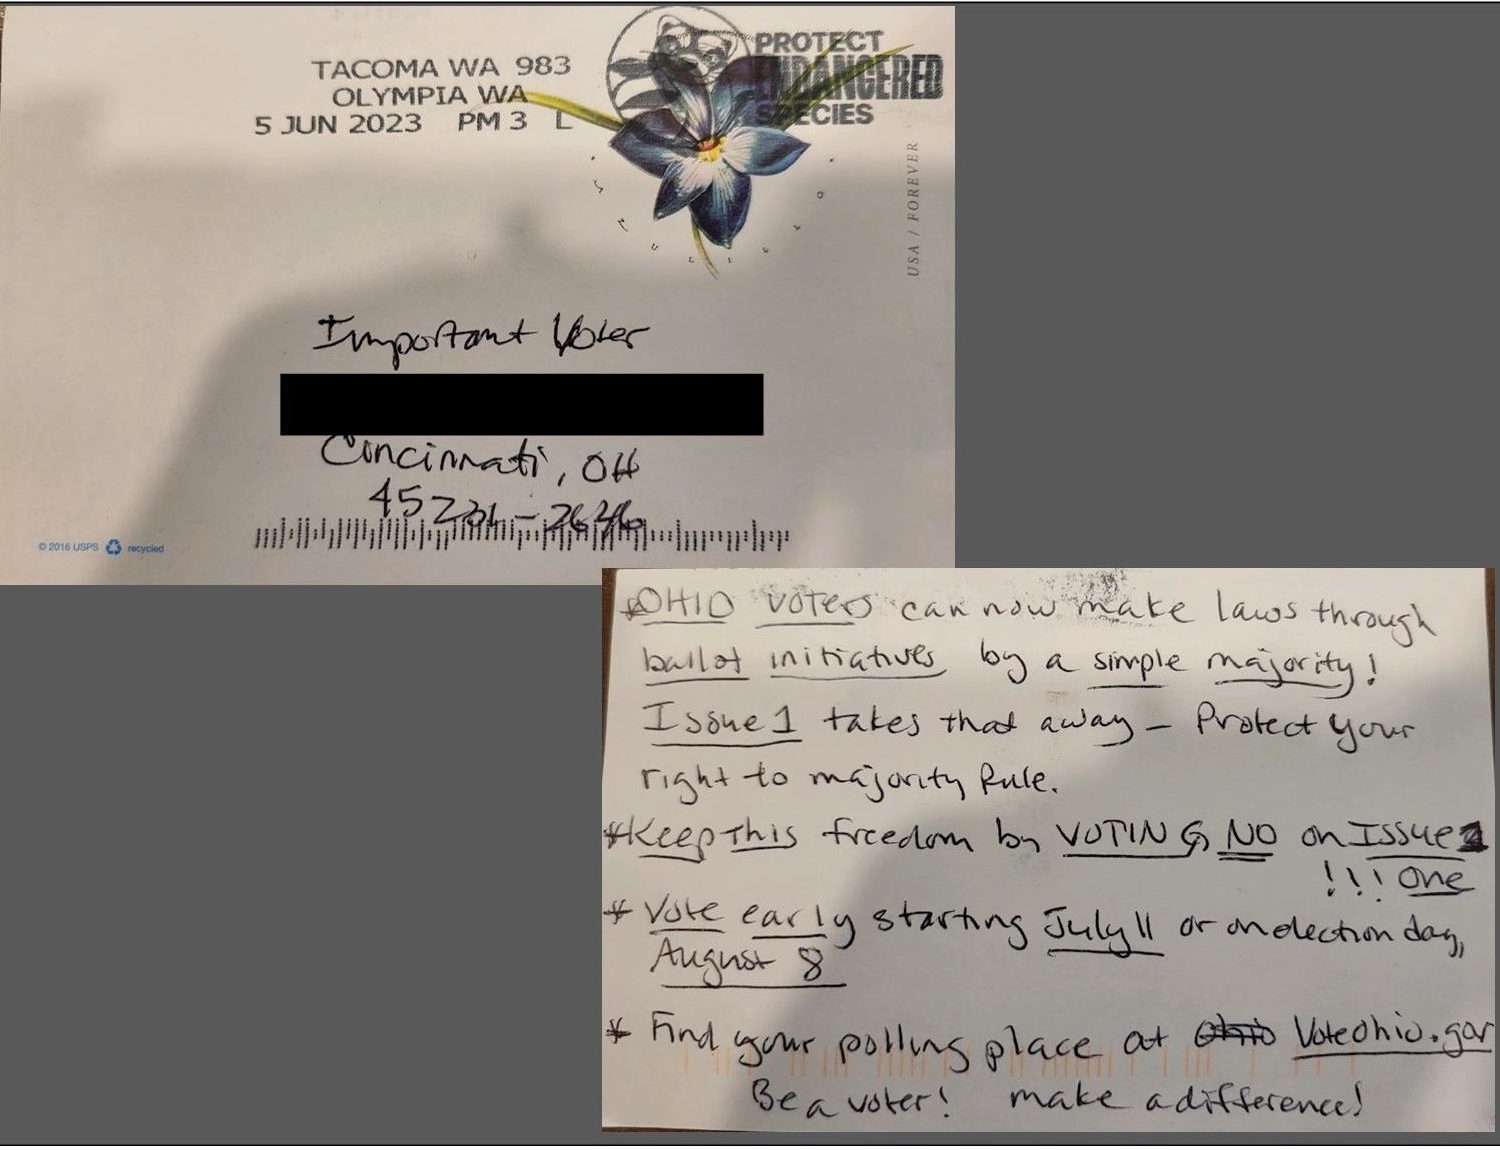 TACOMA WA 983
OLYMPIA WA
5 JUN 2023 PM 3 L
PROTECT
ENDANGERED
SPECIES
USA / FOREVER
Important Voter
Cincinnati, OH
45231-2646
© 2016 USPS recycled
*OHIO voters can now make laws through
ballot initiatives by a simple majority!
Issue 1 takes that away - Protect your
right to majority Rule.
*Keep this freedom by VOTING NO on Issue 1
!!! One
* Vote early starting July 11 or on election day,
August 8
* Find your polling place at Ohio Voteohio.gov
Be a voter! make a difference!